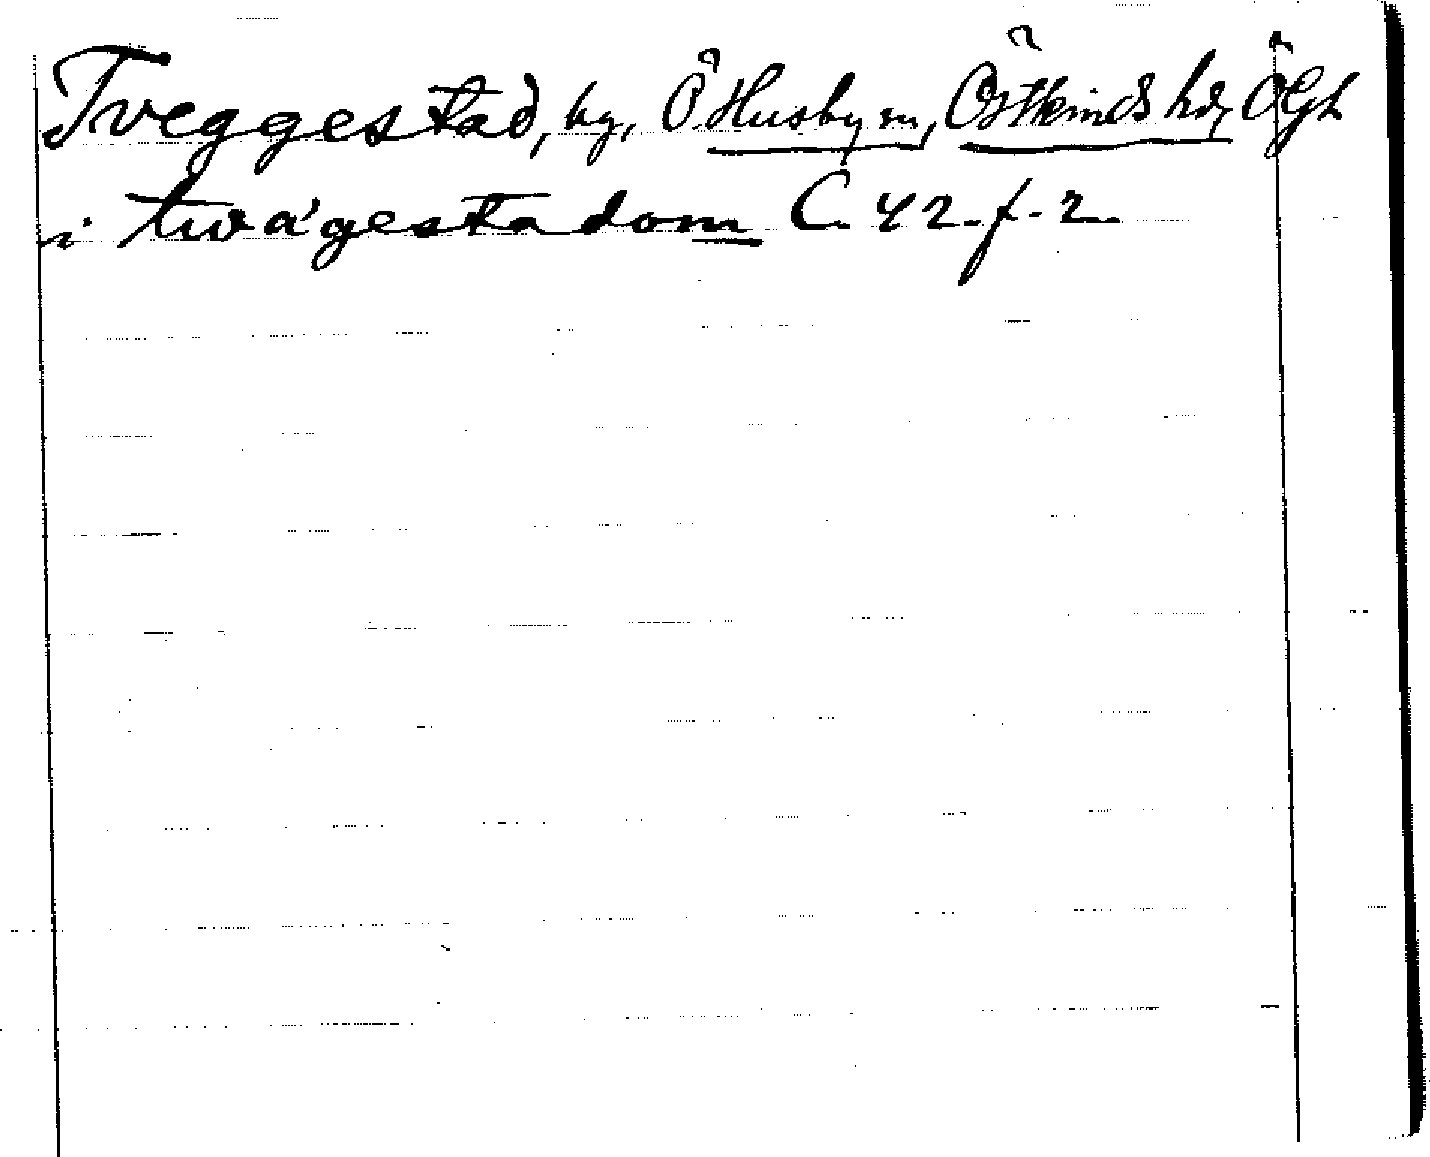 Tveggestad, by, Ö Husby sn, Östkinds hd, Ögl
i twágestadom C 42. f. 2.